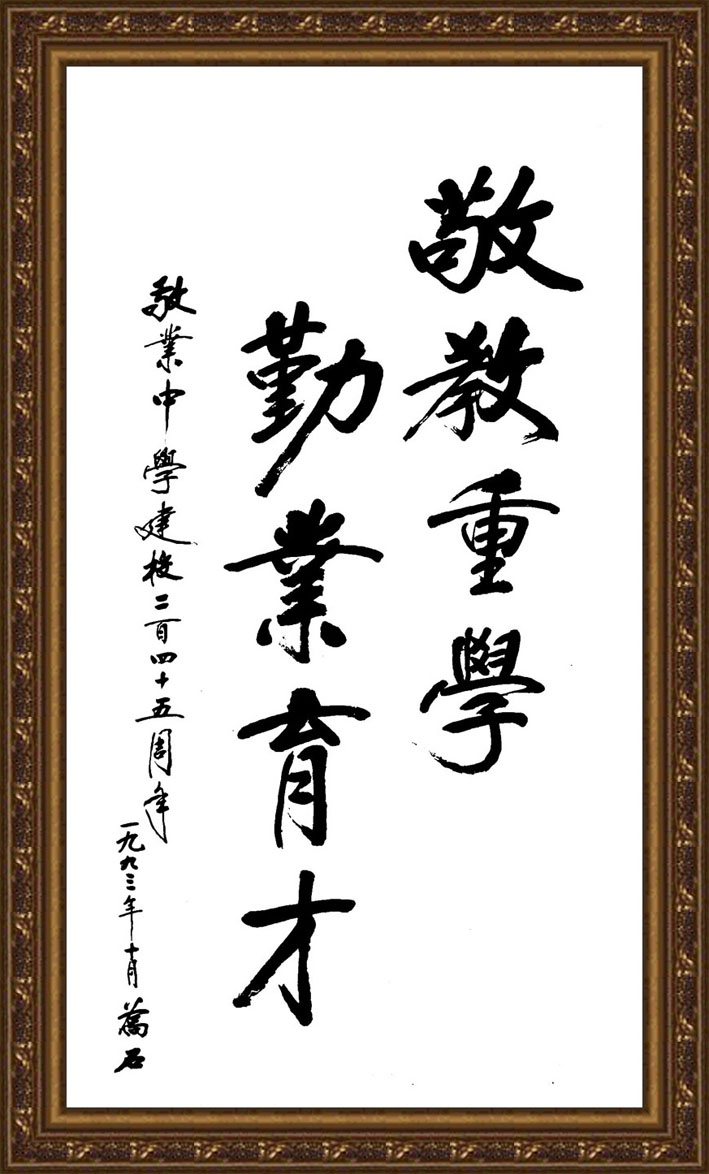 敬教重學
勤業育才
敬業中學建校二百四十五周年
一九九三年十月 喬石